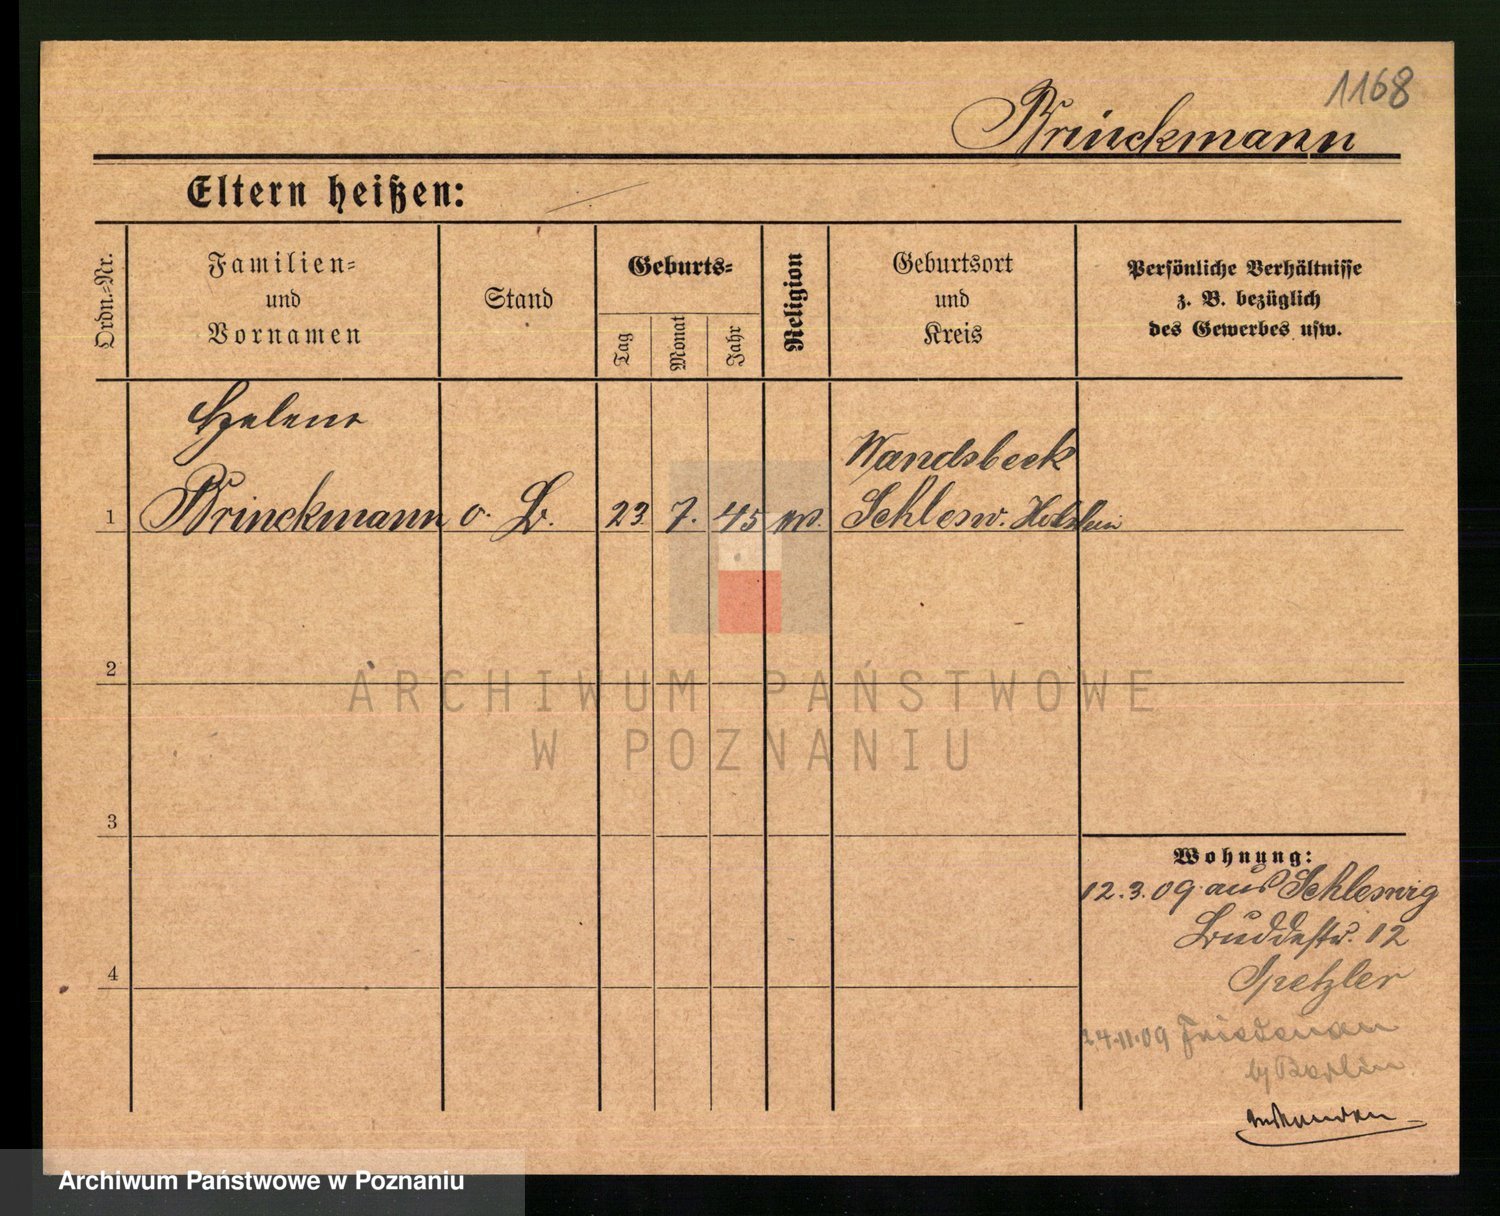 1168
Brinckmann
Eltern heißen:
Ordn.-Nr.
Familien-
und
Vornamen
Stand
Geburts-
Tag
Monat
Jahr
Religion
Geburtsort
und
Kreis
Persönliche Verhältnisse
z. B. bezüglich
des Gewerbes usw.
Helene
Wandsbeck
1 Brinckmann o. B. 23. 7. 45 Schlesw. Holstein
2
ARCHIWUM PAŃSTWOWE
W POZNANIU
3
Wohnung:
12.3.09 aus Schleswig
Buddestr. 12
Spetzler
4
24.11.09 Friedenau
b/Berlin
Archiwum Państwowe w Poznaniu